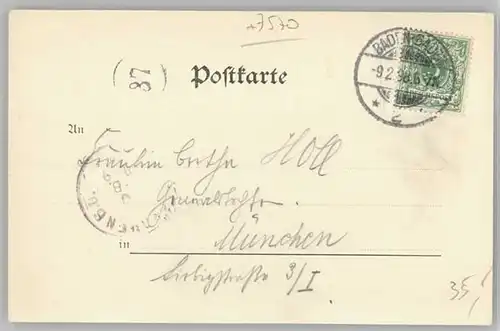 +7570
(87)
Postkarte
BADEN-BADEN
-9.2.98.6-7N.
* 2
An
Fräulein Bertha Holl
Generalstochter
in München
Liebigstraße 3/I
35,-